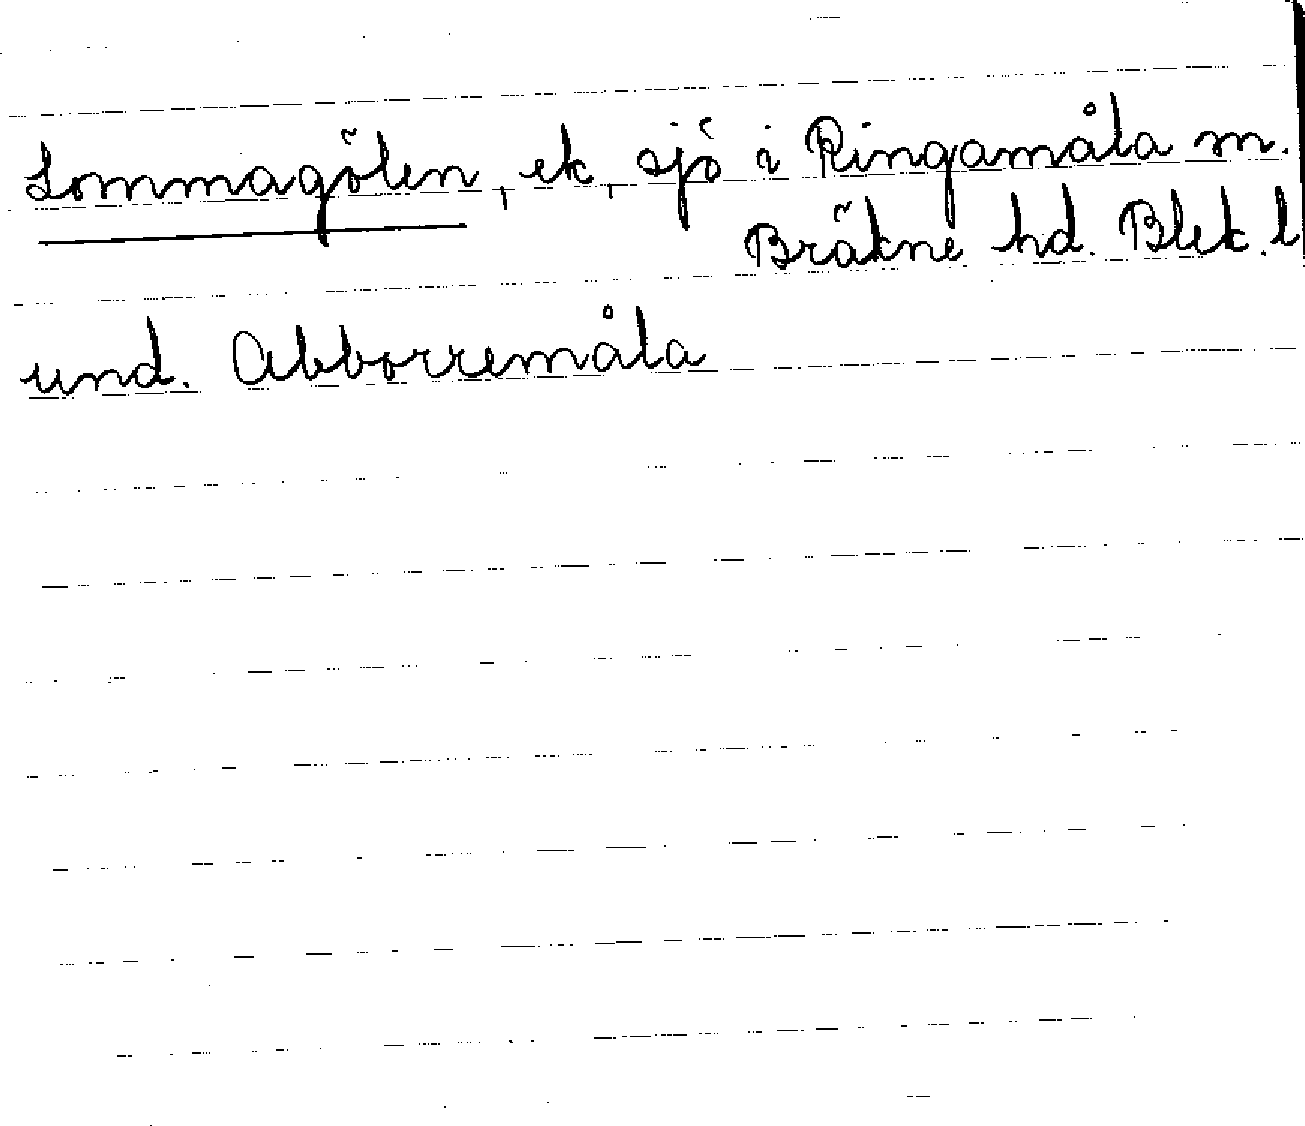 Lommagölen, ek, sjö i Ringamåla m.
Bräkne hd. Blek. l
und. Abborremåla